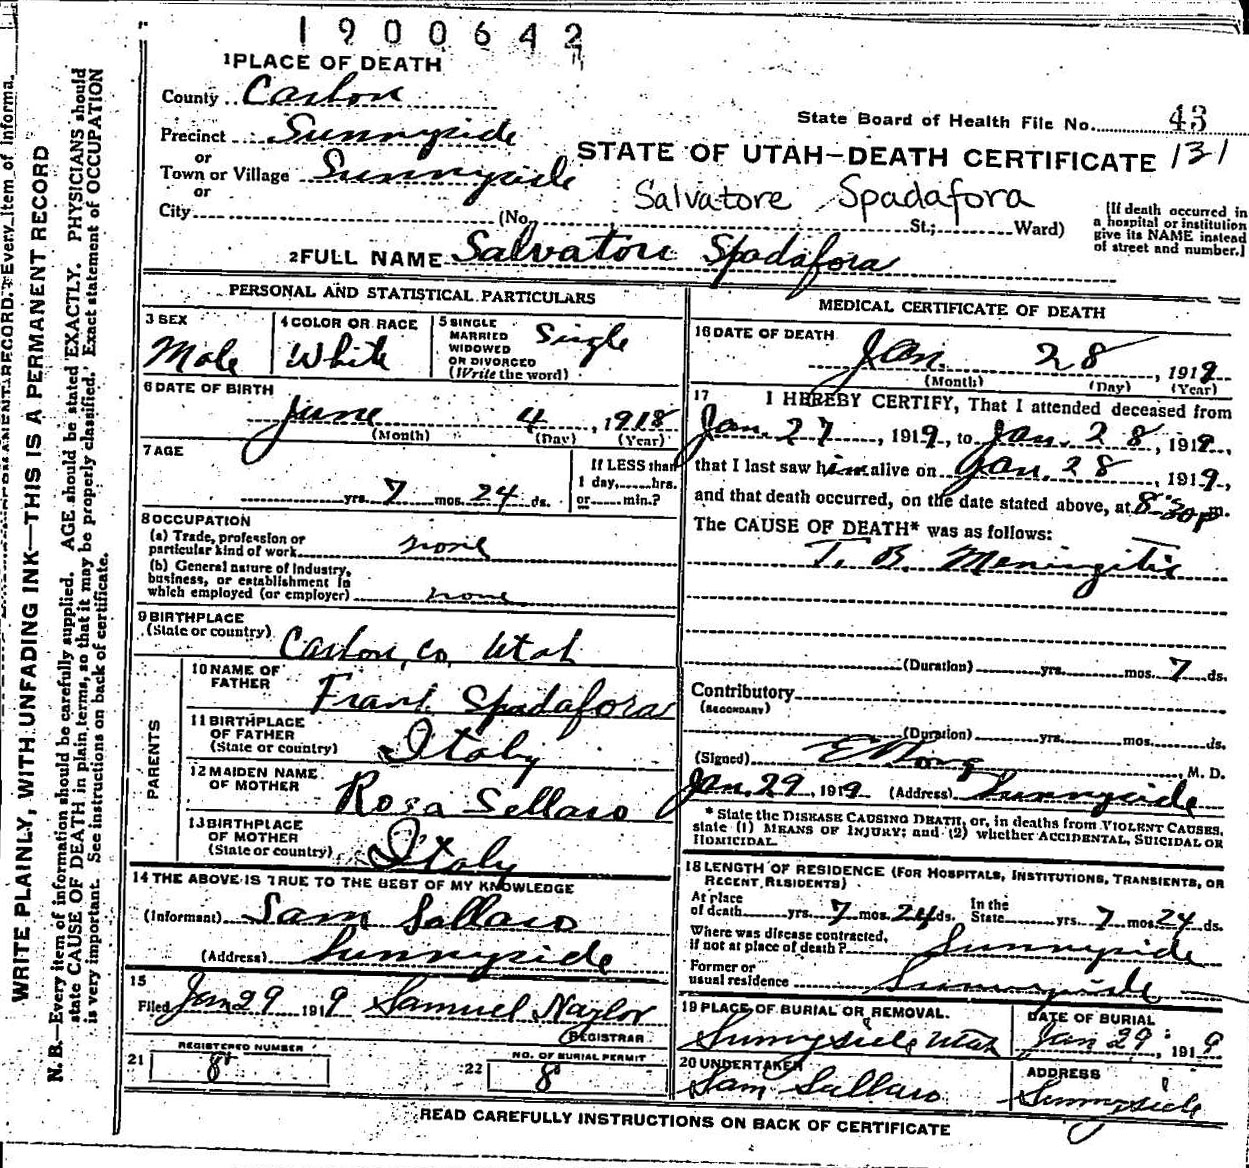 1900642
1 PLACE OF DEATH
County Carbon
State Board of Health File No. 43
Precinct Sunnyside
131
or
STATE OF UTAH—DEATH CERTIFICATE
Town or Village Sunnyside
or
Salvatore Spadafora
City (No. St.; Ward)
[If death occurred in
a hospital or institution
give its NAME instead
of street and number.]
2 FULL NAME Salvatore Spadafora
PERSONAL AND STATISTICAL PARTICULARS
3 SEX
Male
4 COLOR OR RACE
White
5 SINGLE
MARRIED
WIDOWED
OR DIVORCED
(Write the word)
Single
6 DATE OF BIRTH
June 4, 1918
(Month) (Day) (Year)
7 AGE
yrs. 7 mos. 24 ds.
If LESS than
1 day, hrs.
or min.?
8 OCCUPATION
(a) Trade, profession or
particular kind of work none
(b) General nature of Industry,
business, or establishment in
which employed (or employer) none
9 BIRTHPLACE
(State or country) Carbon, Co, Utah
PARENTS
10 NAME OF
FATHER Frank Spadafora
11 BIRTHPLACE
OF FATHER
(State or country) Italy
12 MAIDEN NAME
OF MOTHER Rosa Sellaro
13 BIRTHPLACE
OF MOTHER
(State or country) Italy
14 THE ABOVE IS TRUE TO THE BEST OF MY KNOWLEDGE
(Informant) Sam Sallaro
(Address) Sunnyside
15
Filed Jan 29 1919 Samuel Naylor
REGISTRAR
21 REGISTERED NUMBER
8
22 NO. OF BURIAL PERMIT
8
MEDICAL CERTIFICATE OF DEATH
16 DATE OF DEATH
Jan. 28, 1919
(Month) (Day) (Year)
17 I HEREBY CERTIFY, That I attended deceased from
Jan. 27, 1919, to Jan. 28, 1919,
that I last saw him alive on Jan. 28, 1919,
and that death occurred, on the date stated above, at 8:30 P m.
The CAUSE OF DEATH* was as follows:
T. B. Meningitis
(Duration) yrs. mos. 7 ds.
Contributory
(SECONDARY)
(Duration) yrs. mos. ds.
(Signed) M. D.
Jan. 29 1919 (Address) Sunnyside
* State the DISEASE CAUSING DEATH, or, in deaths from VIOLENT CAUSES,
state (1) MEANS OF INJURY; and (2) whether ACCIDENTAL, SUICIDAL OR
HOMICIDAL.
18 LENGTH OF RESIDENCE (FOR HOSPITALS, INSTITUTIONS, TRANSIENTS, OR
RECENT RESIDENTS)
At place
of death yrs. 7 mos. 24 ds.
In the
State yrs. 7 mos. 24 ds.
Where was disease contracted,
if not at place of death? Sunnyside
Former or
usual residence Sunnyside
19 PLACE OF BURIAL OR REMOVAL.
Sunnyside Utah
DATE OF BURIAL
Jan 29, 1919
20 UNDERTAKER
Sam Sallaro
ADDRESS
Sunnyside
READ CAREFULLY INSTRUCTIONS ON BACK OF CERTIFICATE
WRITE PLAINLY, WITH UNFADING INK—THIS IS A PERMANENT RECORD
N. B.—Every item of information should be carefully supplied. AGE should be stated EXACTLY. PHYSICIANS should
state CAUSE OF DEATH in plain terms, so that it may be properly classified. Exact statement of OCCUPATION
is very important. See instructions on back of certificate.